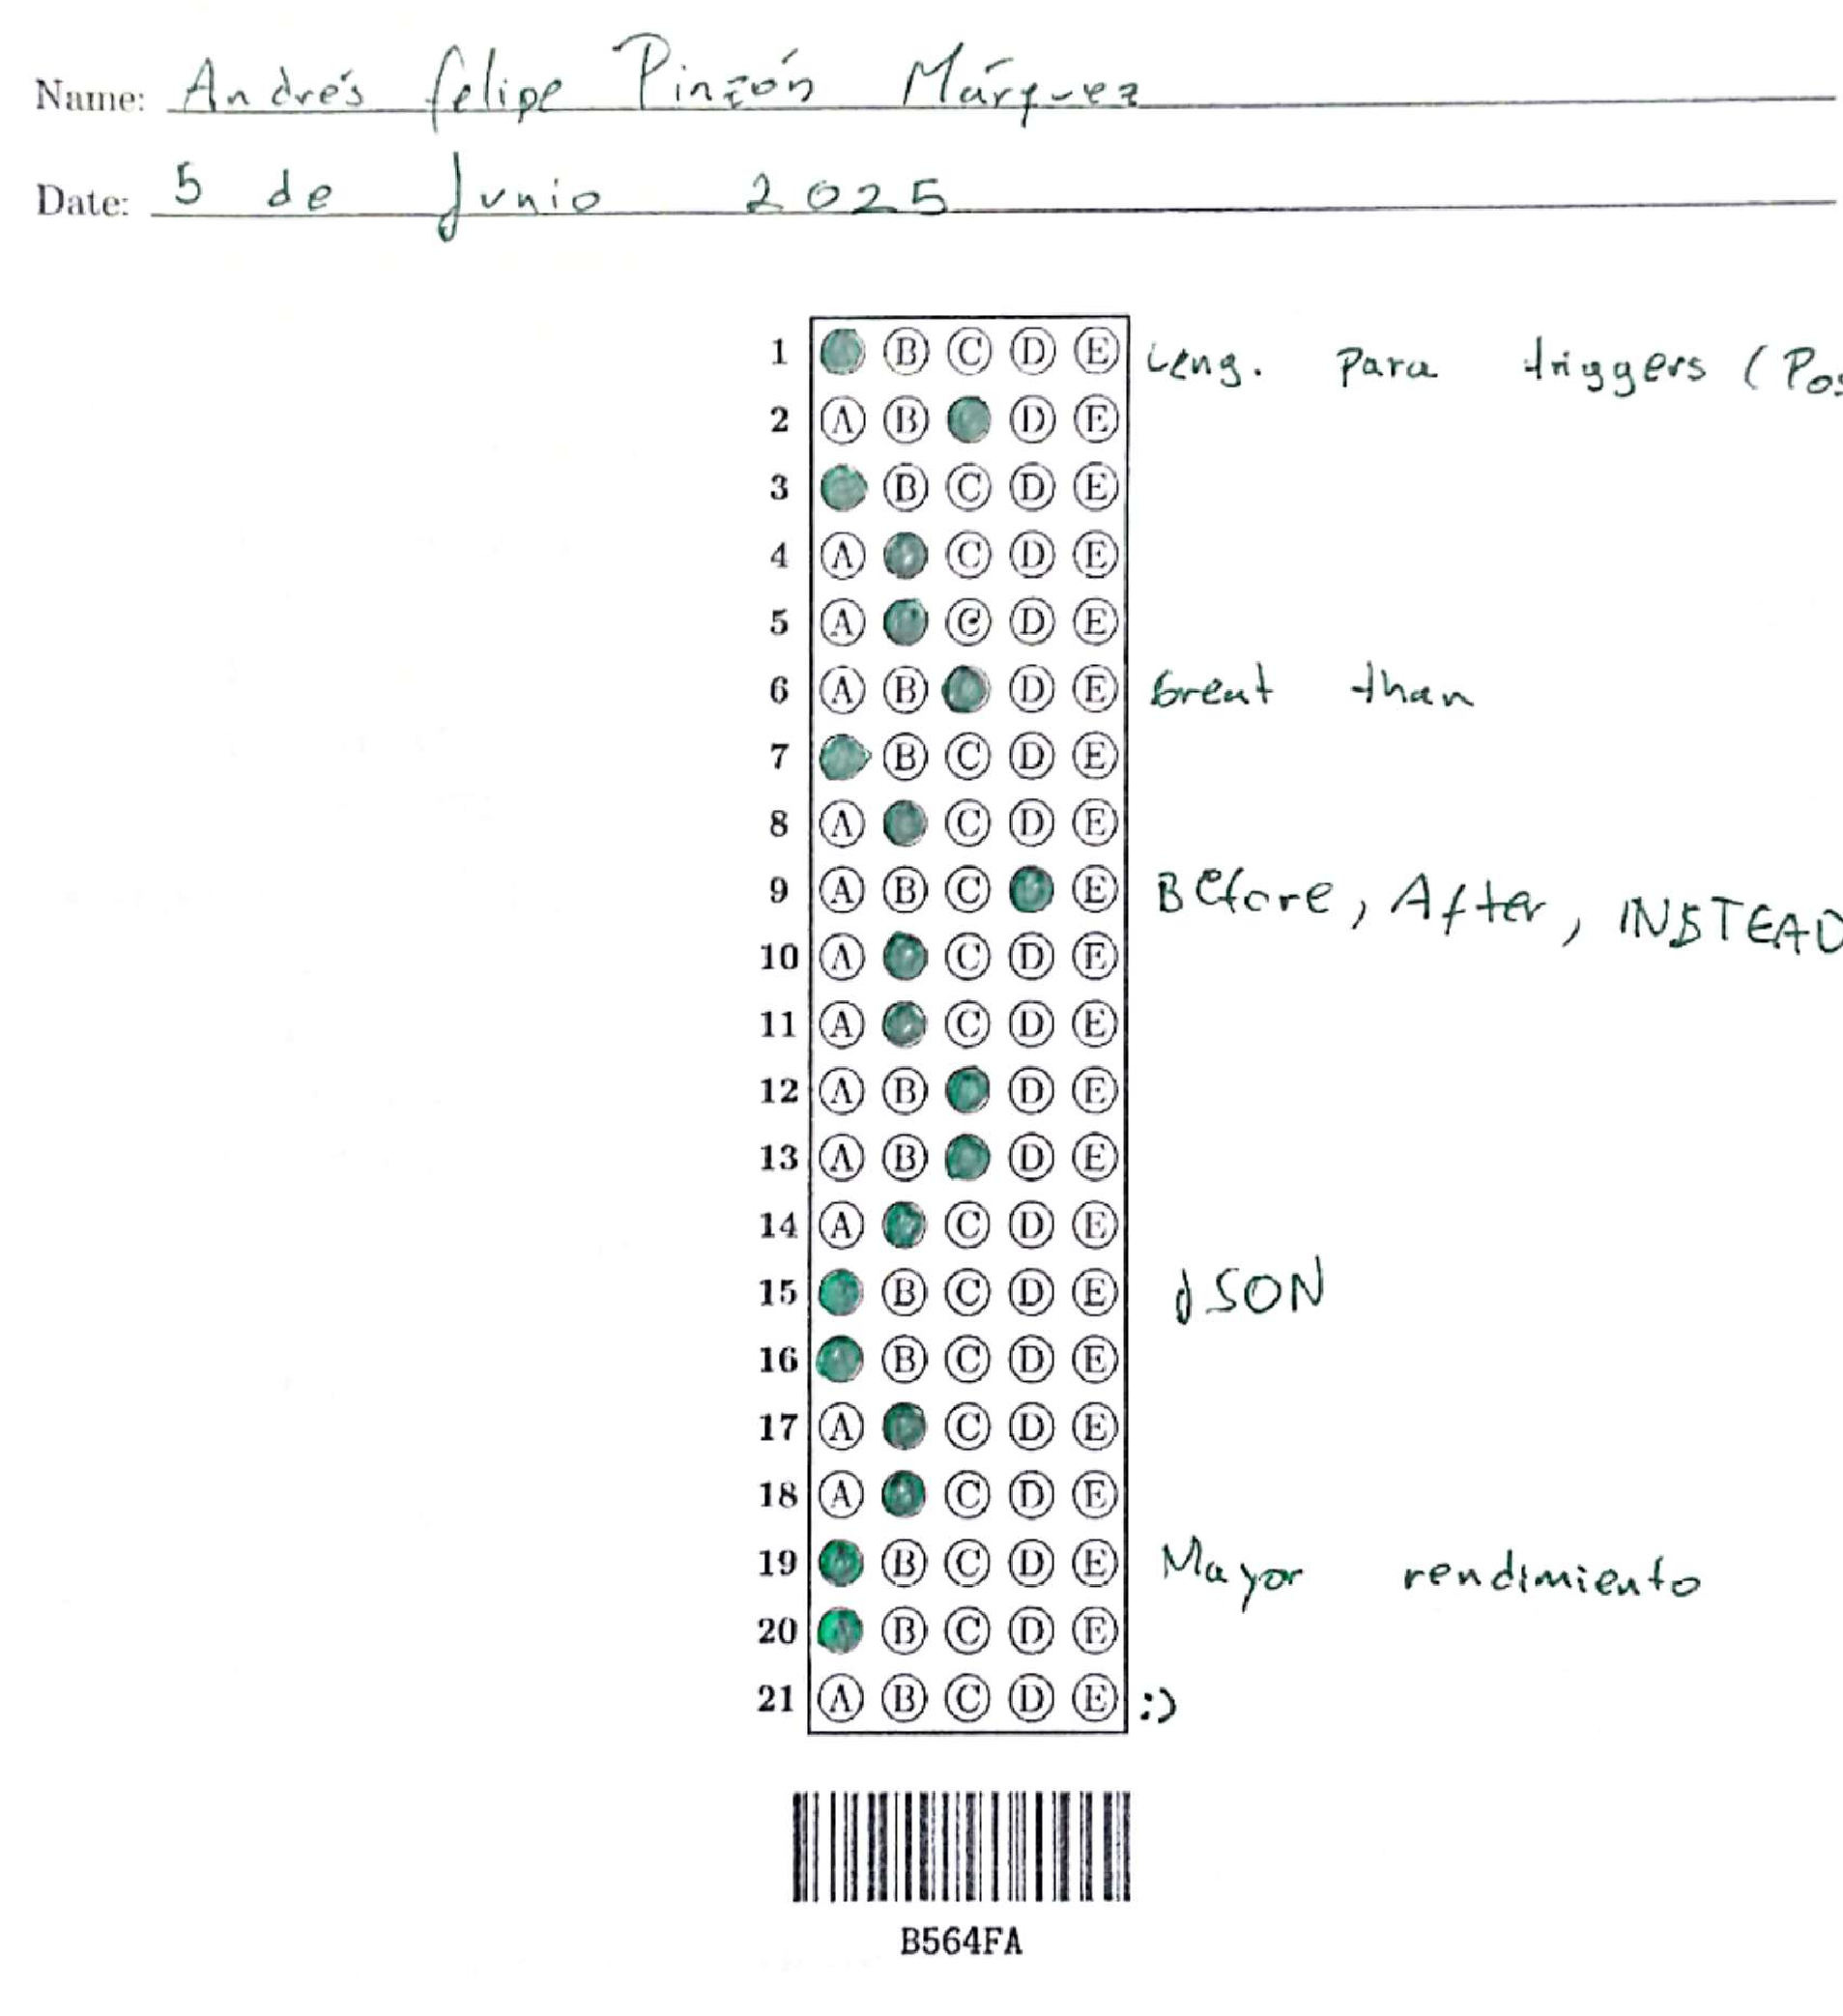 Name: Andrés felipe Pinzón Márquez
Date: 5 de Junio 2025
1 B C D E Leng. Para triggers (Pos
2 A B D E
3 B C D E
4 A C D E
5 A C D E
6 A B D E Great than
7 B C D E
8 A C D E
9 A B C E Before, After, INSTEAD
10 A C D E
11 A C D E
12 A B D E
13 A B D E
14 A C D E
15 B C D E JSON
16 B C D E
17 A C D E
18 A C D E
19 B C D E Mayor rendimiento
20 B C D E
21 A B C D E :)
B564FA